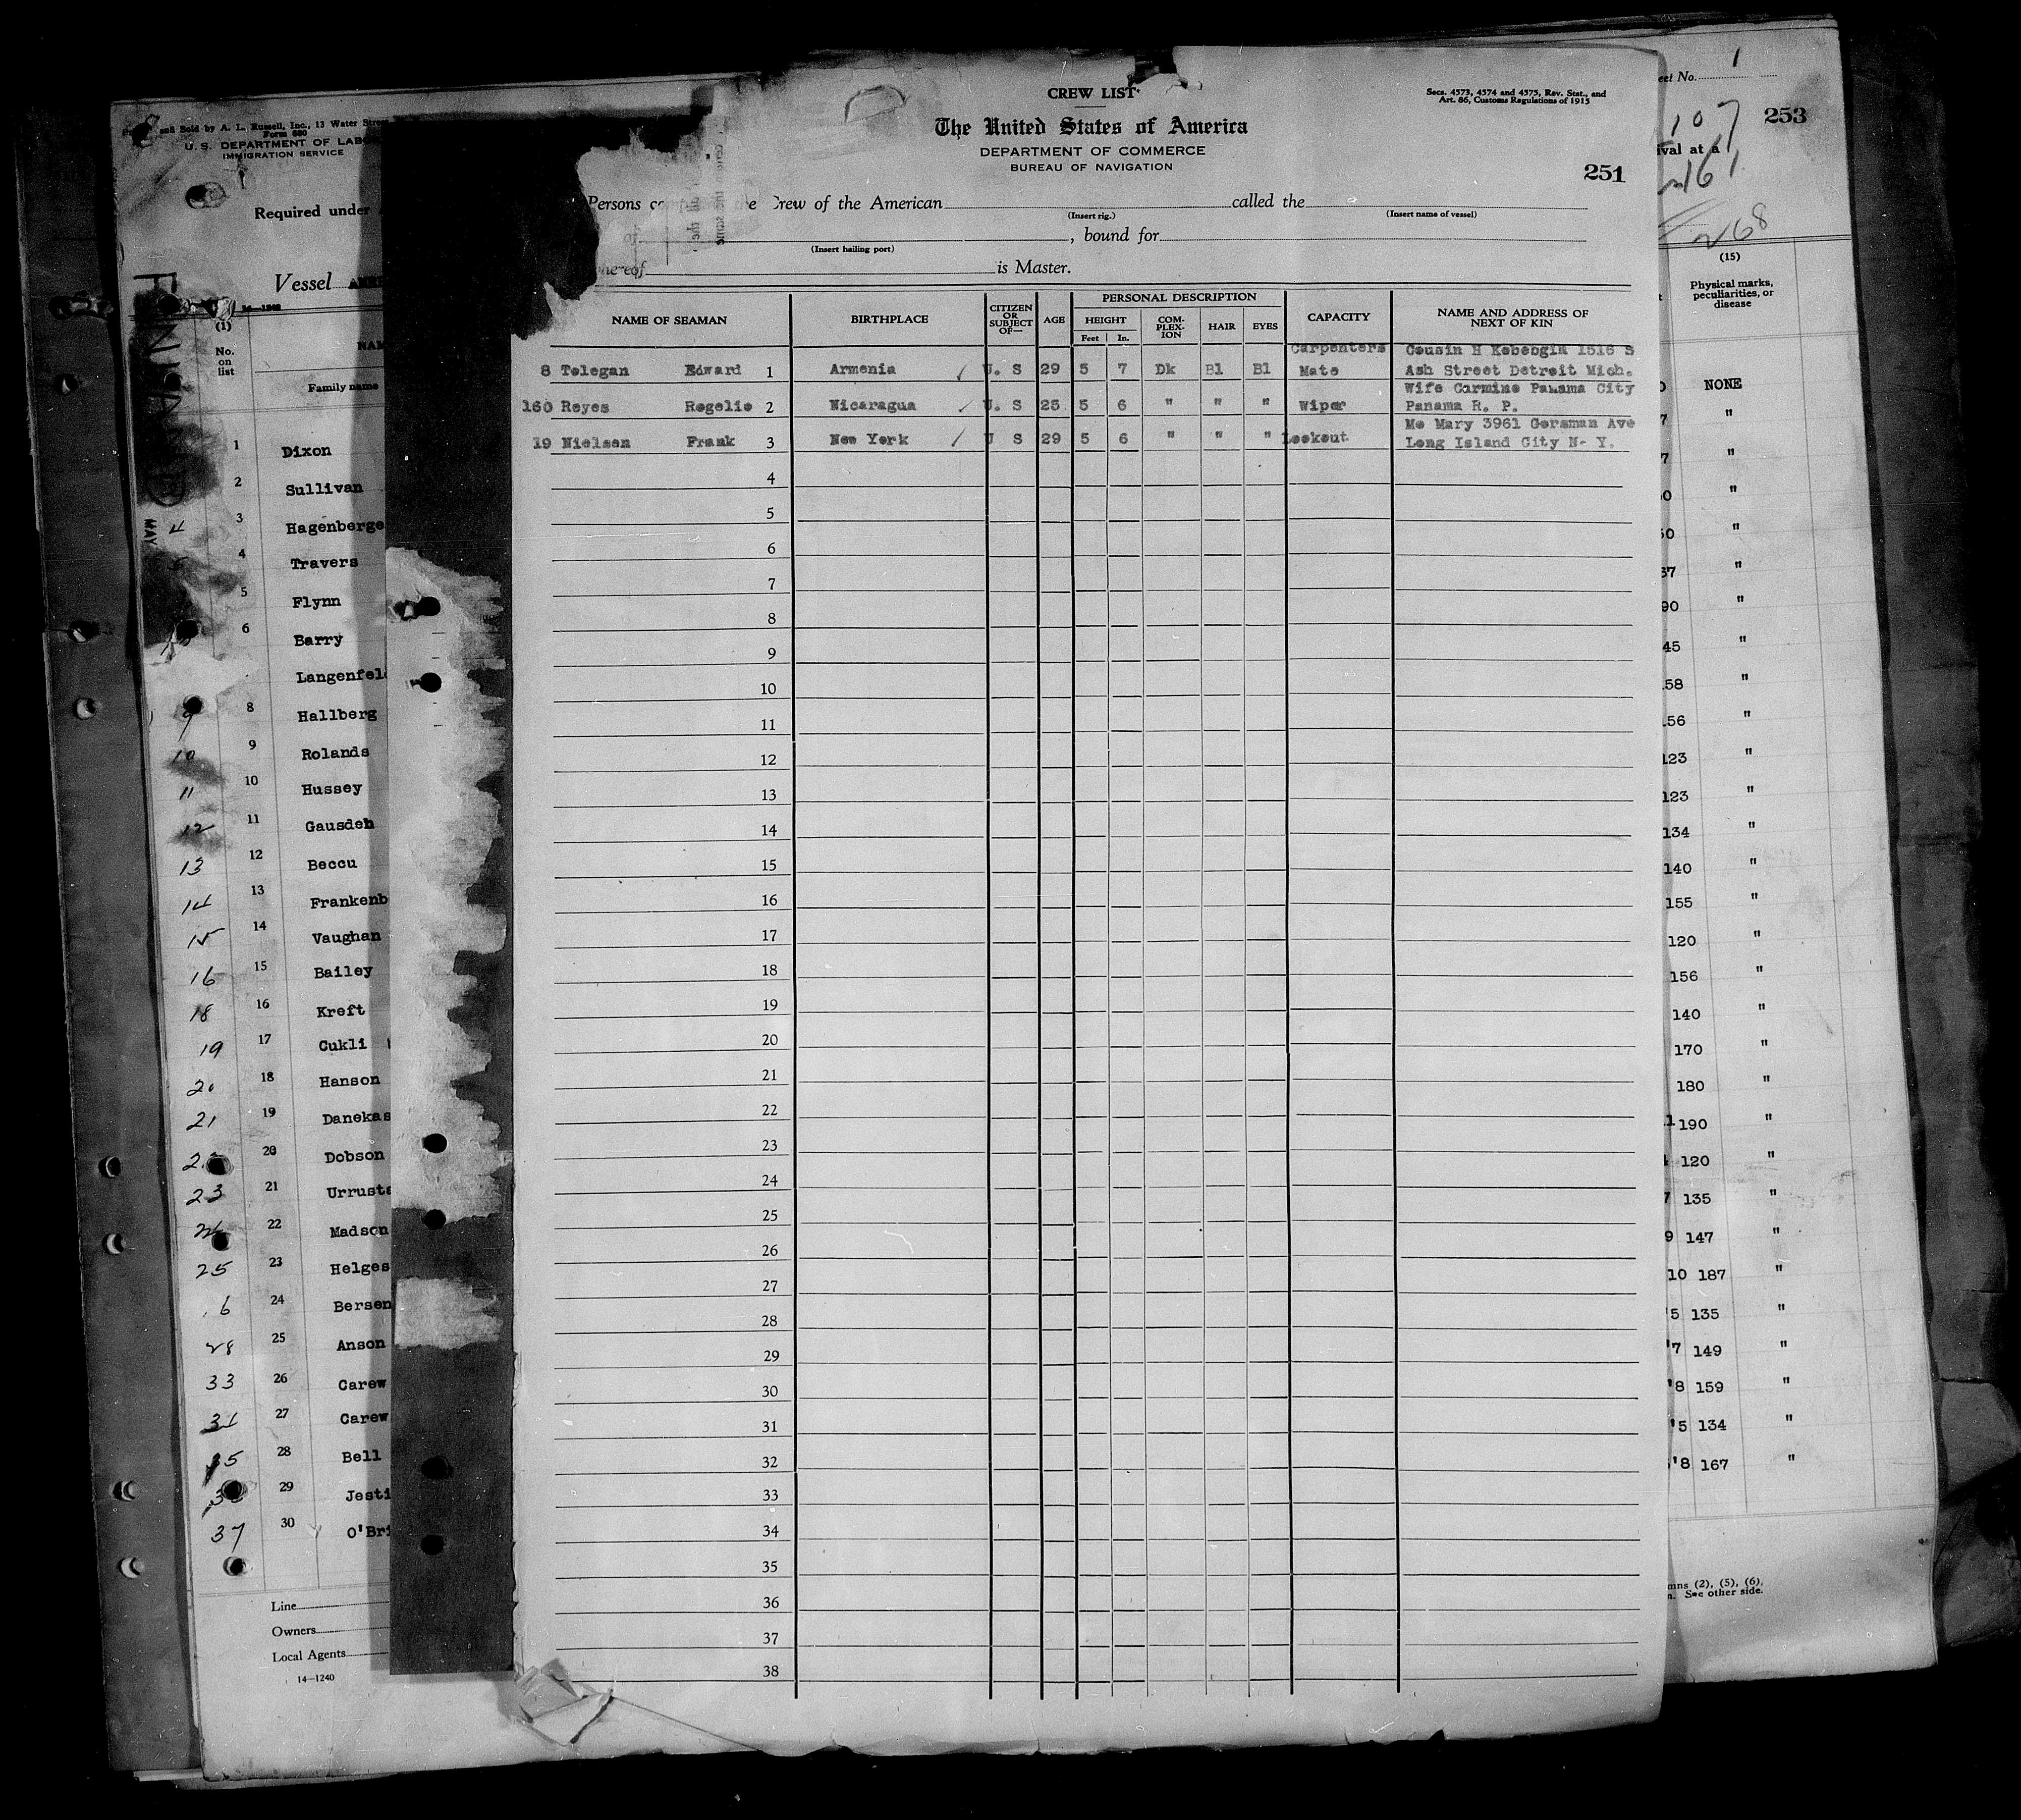 and Sold by A. L. Russell, Inc., 13 Water Street
Form 680
U. S. DEPARTMENT OF LABO
IMMIGRATION SERVICE
Required under
Vessel
14—1240
(1)
No.
on
list
NAM
Family name
MAY
1 Dixon
2 Sullivan
4 3 Hagenberge
5 4 Travers
5 Flynn
6 Barry
Langenfeld
9 8 Hallberg
10 9 Rolands
11 10 Hussey
12 11 Gausdeh
13 12 Beccu
14 13 Frankenb
15 14 Vaughan
16 15 Bailey
18 16 Kreft
19 17 Cukli
20 18 Hanson
21 19 Danekas
20 Dobson
23 21 Urrusta
22 Madson
25 23 Helges
6 24 Bersen
28 25 Anson
33 26 Carew
31 27 Carew
28 Bell
29 Jesti
37 30 O'Bri
Line
Owners
Local Agents
14—1240
CREW LIST
Secs. 4573, 4574 and 4575, Rev. Stat., and
Art. 86, Customs Regulations of 1915
The United States of America
DEPARTMENT OF COMMERCE
BUREAU OF NAVIGATION
251
Persons co e Crew of the American called the
(Insert rig.) (Insert name of vessel)
, bound for
(Insert hailing port)
hereof is Master.
NAME OF SEAMAN BIRTHPLACE CITIZEN OR SUBJECT OF— AGE PERSONAL DESCRIPTION CAPACITY NAME AND ADDRESS OF NEXT OF KIN
HEIGHT COM-PLEX-ION HAIR EYES
Feet In.
Carpenters Cousin H Kebebgin 1516 S
8 Telegan Edward 1 Armenia U. S 29 5 7 Dk Bl Bl Mate Ash Street Detroit Mich.
Wife Carmine Panama City
160 Reyes Rogelio 2 Nicaragua U. S 25 5 6 " " " Wiper Panama R. P.
Mo Mary 3961 Gorsman Ave
19 Nielsen Frank 3 New York U S 29 5 6 " " " Lookout Long Island City N- Y.
4
5
6
7
8
9
10
11
12
13
14
15
16
17
18
19
20
21
22
23
24
25
26
27
28
29
30
31
32
33
34
35
36
37
38
eet No. 1
107
253
ival at a
161
268
(15)
Physical marks,
peculiarities, or
disease
0 NONE
7 "
7 "
60 "
50 "
37 "
90 "
45 "
58 "
156 "
123 "
123 "
134 "
140 "
155 "
120 "
156 "
140 "
170 "
180 "
190 "
120 "
135 "
9 147 "
10 187 "
5 135 "
'7 149 "
'8 159 "
'5 134 "
'8 167 "
mns (2), (5), (6),
n. See other side.